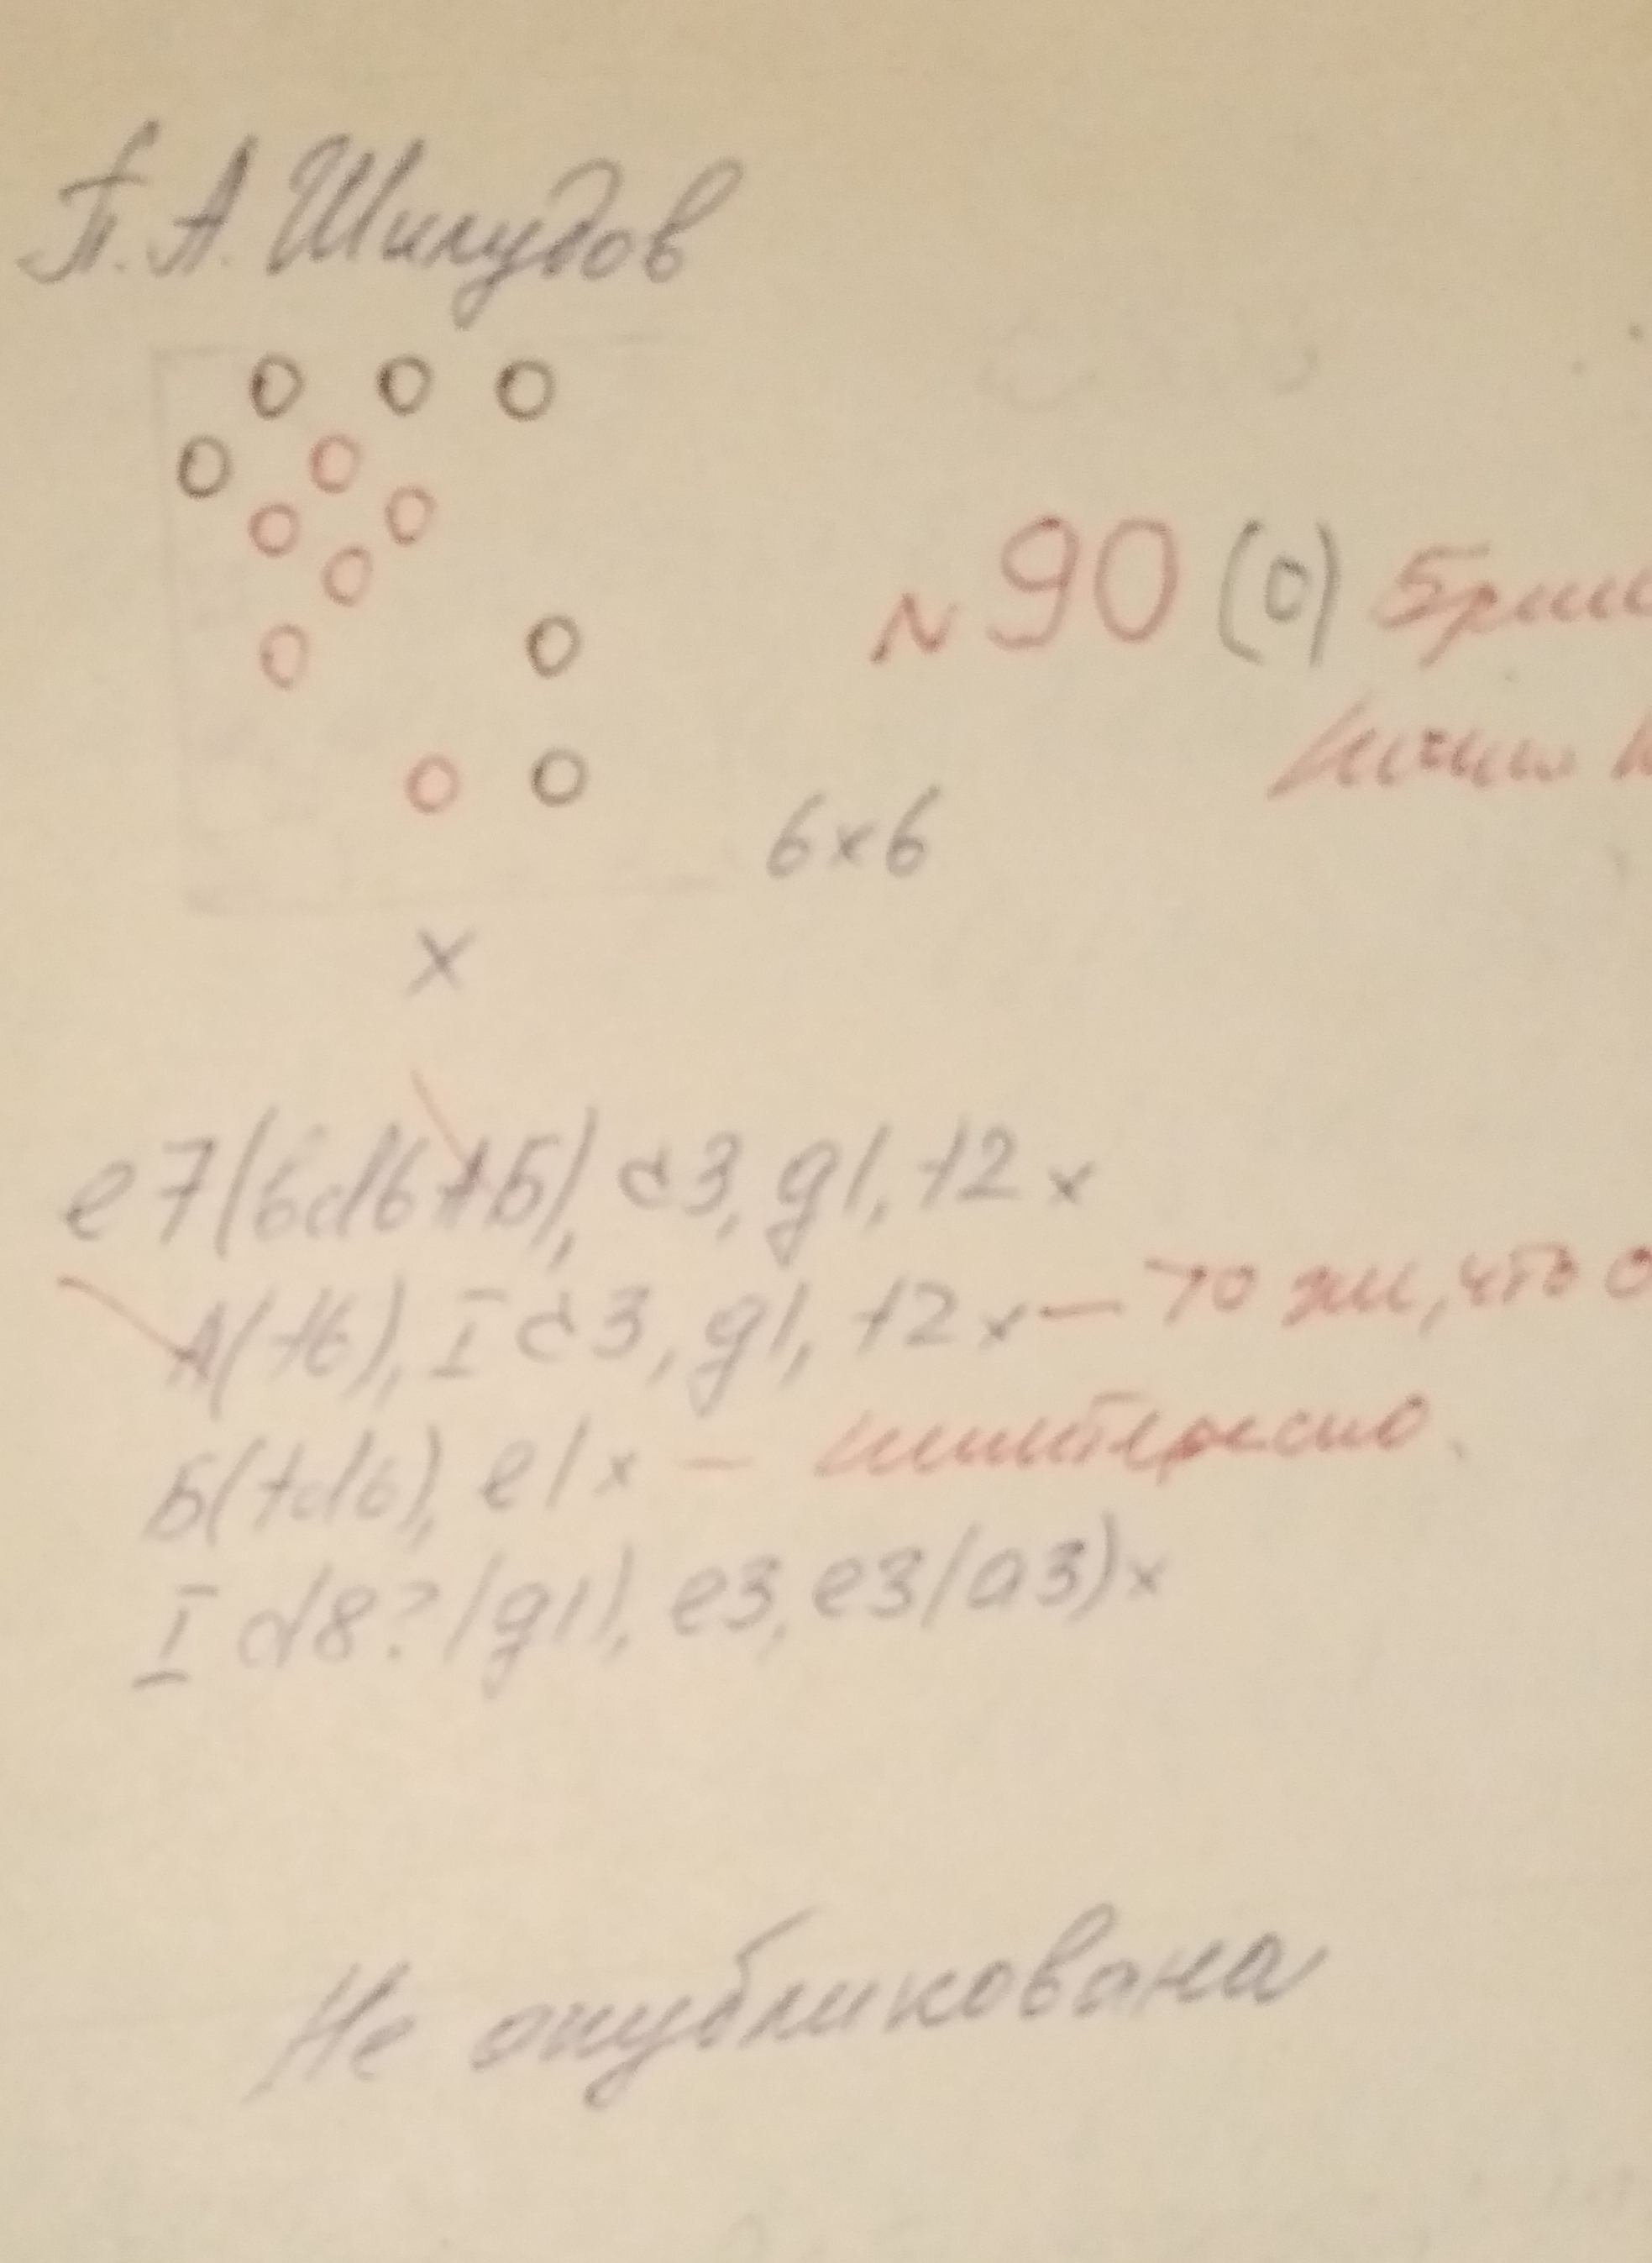 П. А. Шилудов
N 90 (0)
6×6
×
e7(bd6 fб), c3, g1, f2×
A(f6), I c3, g1, f2× — то же, что
Б(fd6), e1× — неинтересно.
I d8? (g1), e3, e3(a3)×
Не опубликована